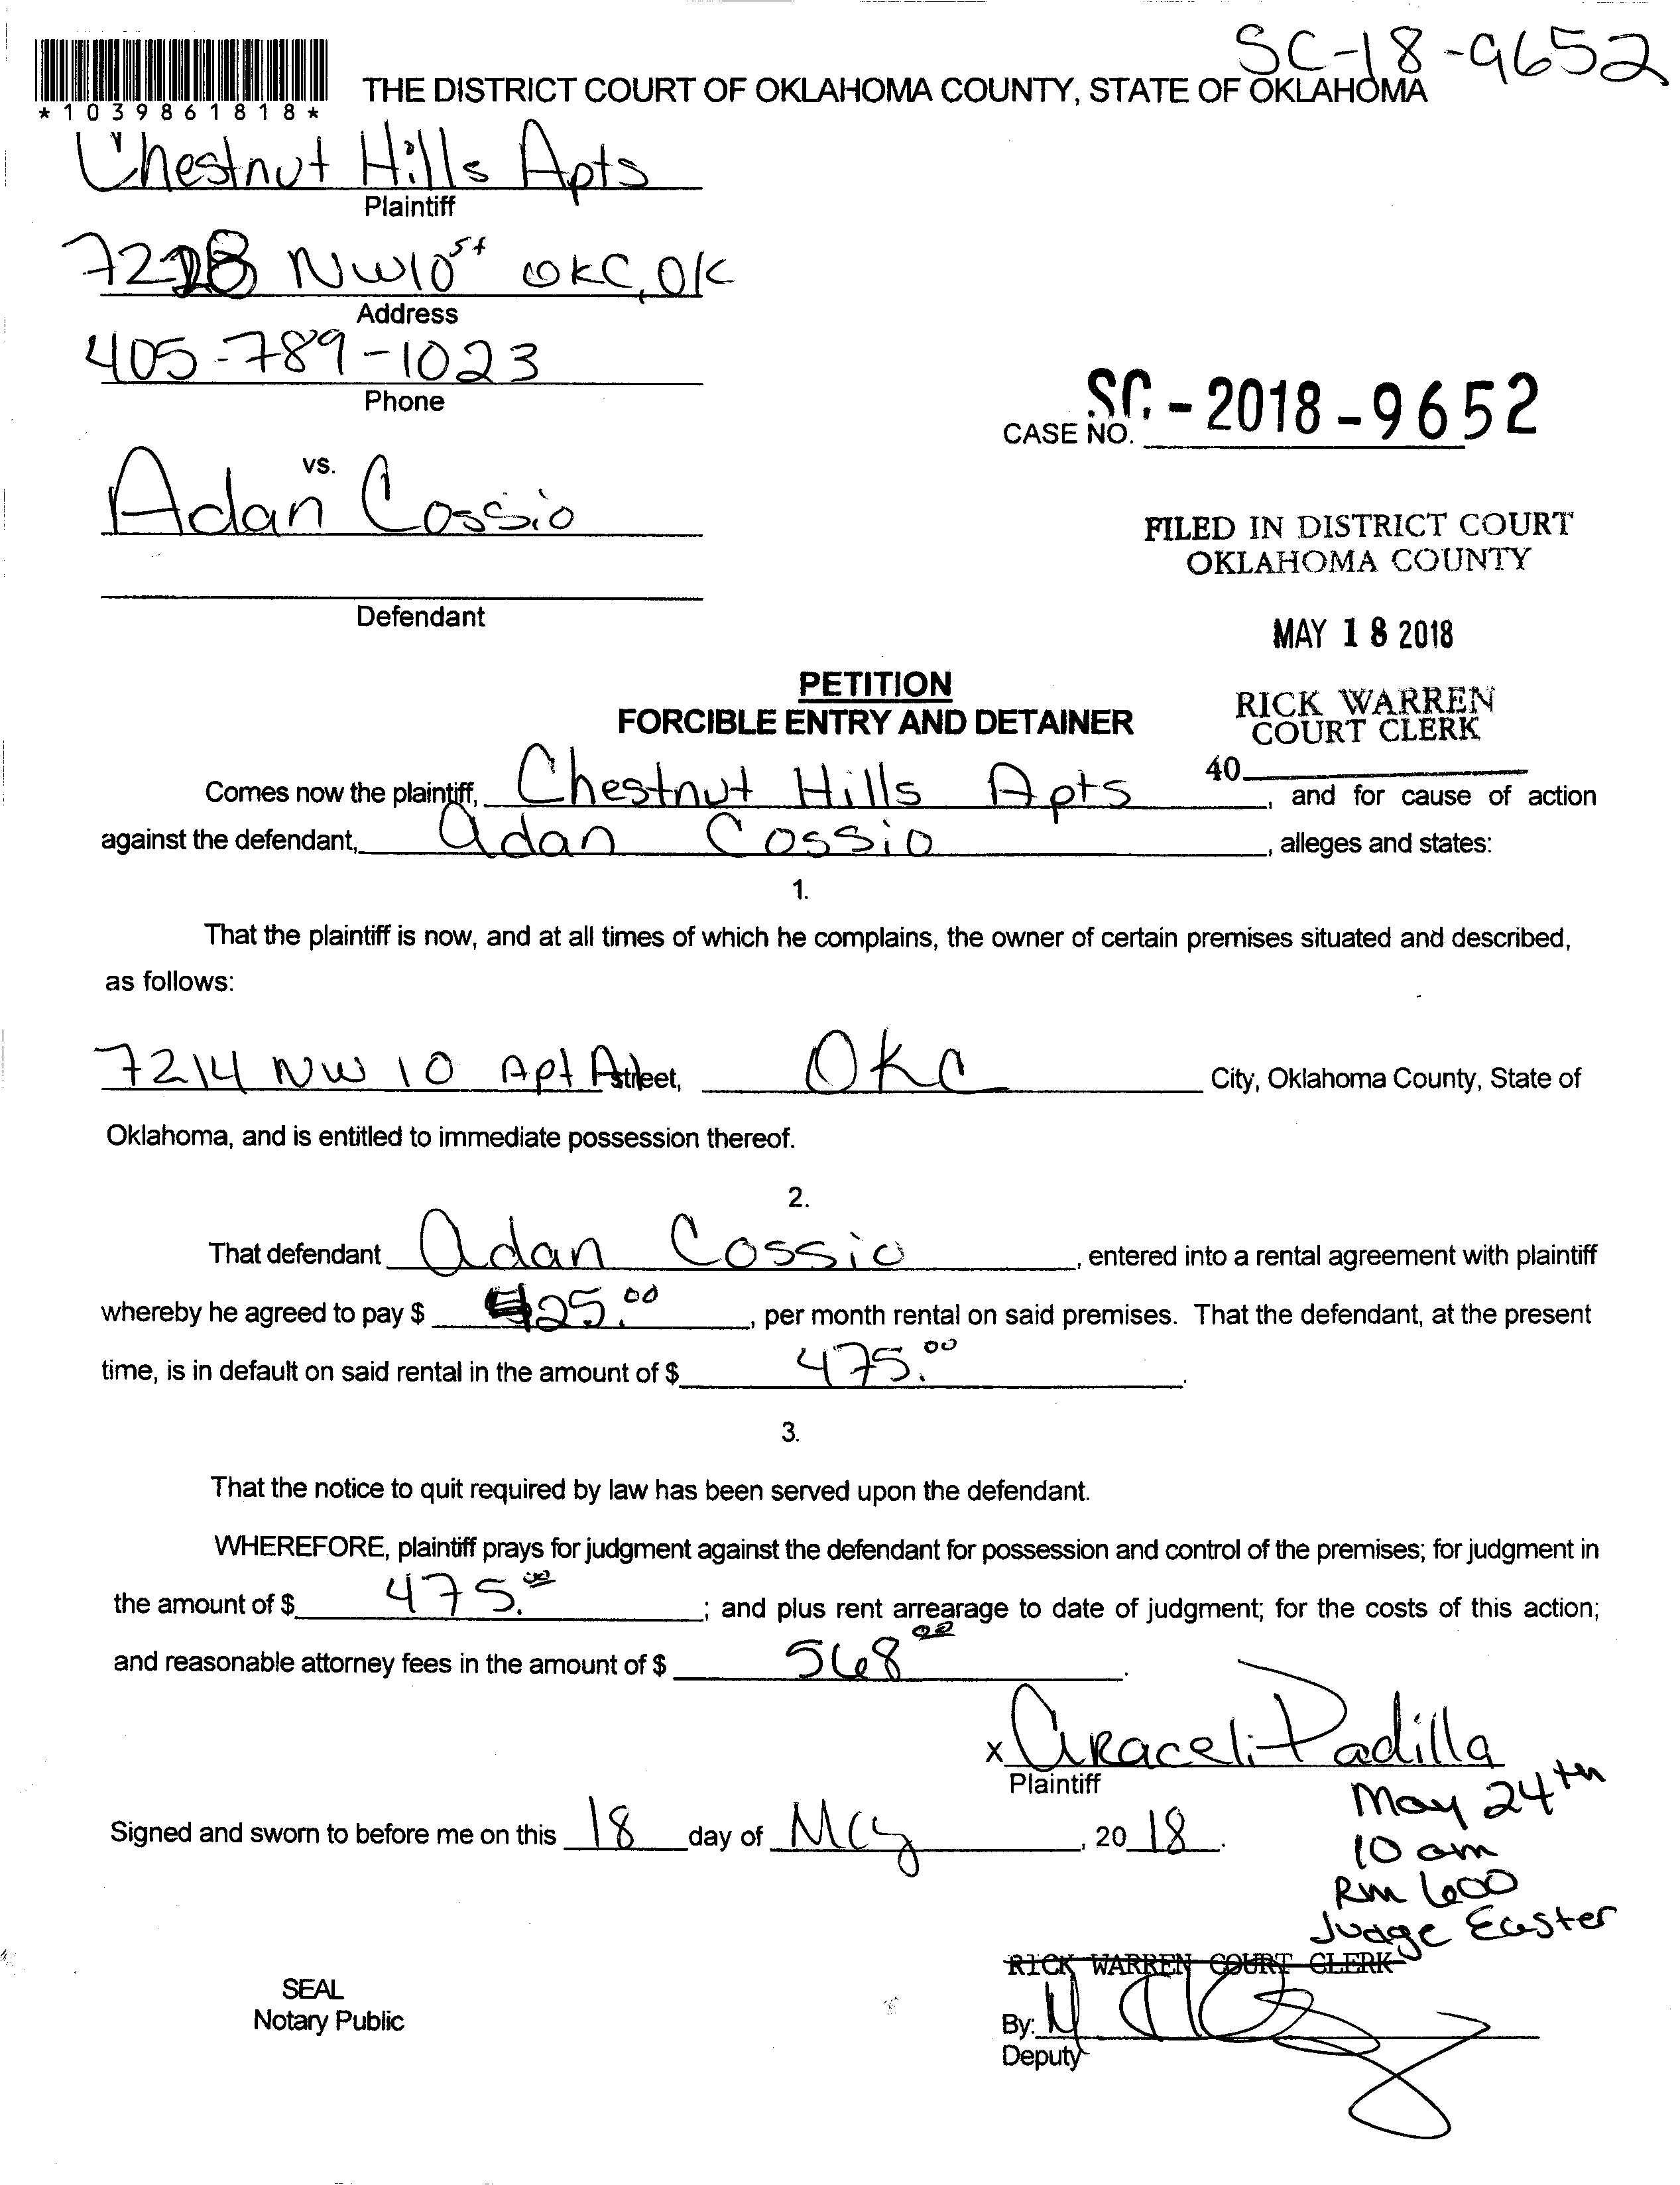 SC-18-9652
*1039861818*
THE DISTRICT COURT OF OKLAHOMA COUNTY, STATE OF OKLAHOMA
Chestnut Hills Apts
Plaintiff
NW10st OKC, OK
Address
405-789-1023
Phone
SC-2018-9652
CASE NO.
vs.
Adan Cossio
FILED IN DISTRICT COURT
OKLAHOMA COUNTY
Defendant
MAY 18 2018
PETITION
FORCIBLE ENTRY AND DETAINER
RICK WARREN
COURT CLERK
40
Comes now the plaintiff, Chestnut Hills Apts, and for cause of action
against the defendant, Adan Cossio, alleges and states:
1.
That the plaintiff is now, and at all times of which he complains, the owner of certain premises situated and described,
as follows:
7214 NW 10 Apt A Street, OKC City, Oklahoma County, State of
Oklahoma, and is entitled to immediate possession thereof.
2.
That defendant Adan Cossio, entered into a rental agreement with plaintiff
whereby he agreed to pay $ 425.00, per month rental on said premises. That the defendant, at the present
time, is in default on said rental in the amount of $ 475.00.
3.
That the notice to quit required by law has been served upon the defendant.
WHEREFORE, plaintiff prays for judgment against the defendant for possession and control of the premises; for judgment in
the amount of $ 475.00; and plus rent arrearage to date of judgment; for the costs of this action;
and reasonable attorney fees in the amount of $ 568 00.
x Araceli Padilla
Plaintiff
Signed and sworn to before me on this 18 day of May, 20 18.
May 24th
10 am
Rm 600
Judge Easter
RICK WARREN COURT CLERK
SEAL
Notary Public
By:
Deputy